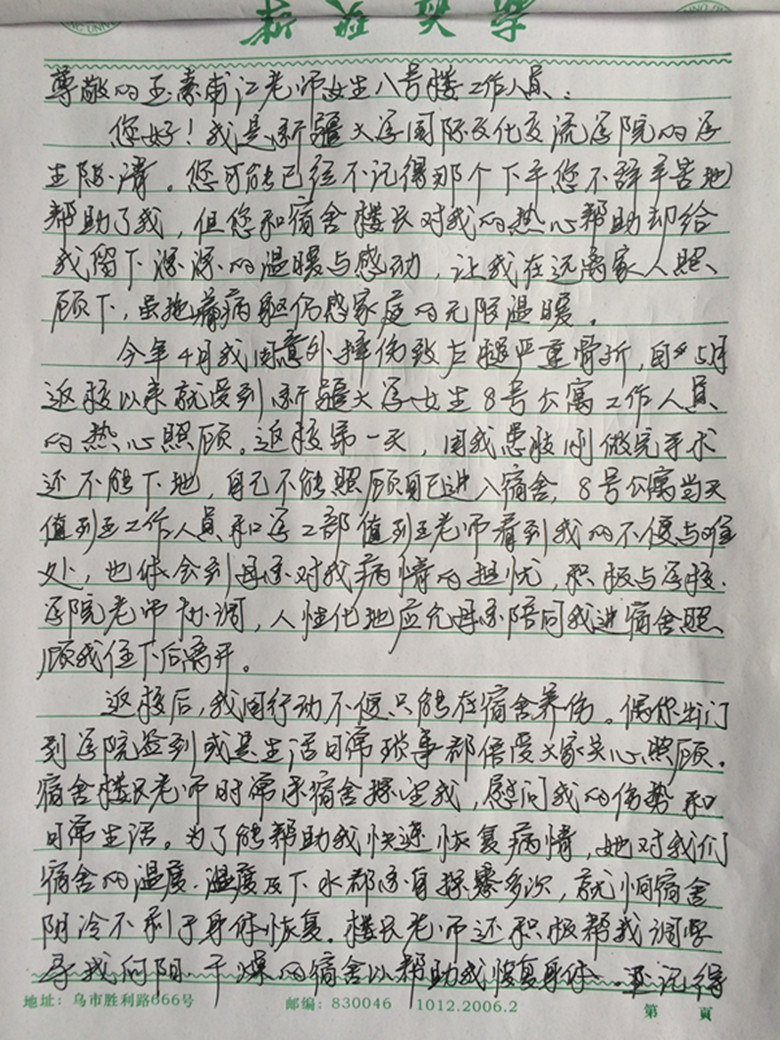 尊敬的玉素甫江老师女生八号楼工作人员:
您好!我是新疆大学国际文化交流学院的学
生陈清。您可能已经不记得那个下午您不辞辛苦地
帮助了我,但您和宿舍楼长对我的热心帮助却给
我留下深深的温暖与感动,让我在远离家人照
顾下,虽拖着病躯仍感家庭的无限温暖。
今年4月我因意外摔伤致左腿严重骨折,自5月
返校以来就受到新疆大学女生8号公寓工作人员
的热心照顾。返校第一天,因我患肢刚做完手术
还不能下地,自己不能照顾自己进入宿舍,8号公寓当天
值班工作人员和学工部值班老师看到我的不便与难
处,也体会到母亲对我病情的担忧,积极与学校.
学院老师协调,人性化地应允母亲陪同我进宿舍照
顾我住下后离开。
返校后,我因行动不便只能在宿舍养伤。偶尔出门
到学院签到或是生活日常琐事都倍受大家关心照顾。
宿舍楼长老师时常来宿舍探望我,慰问我的伤势和
日常生活。为了能帮助我快速恢复病情,她对我们
宿舍的温度.湿度及下水都亲自探察多次,就怕宿舍
阴冷不利于身体恢复。楼长老师还积极帮我调
寻找向阳.干燥的宿舍以帮助我恢复身体。还记得
地址:乌市胜利路666号 邮编:830046 1012.2006.2 第 頁